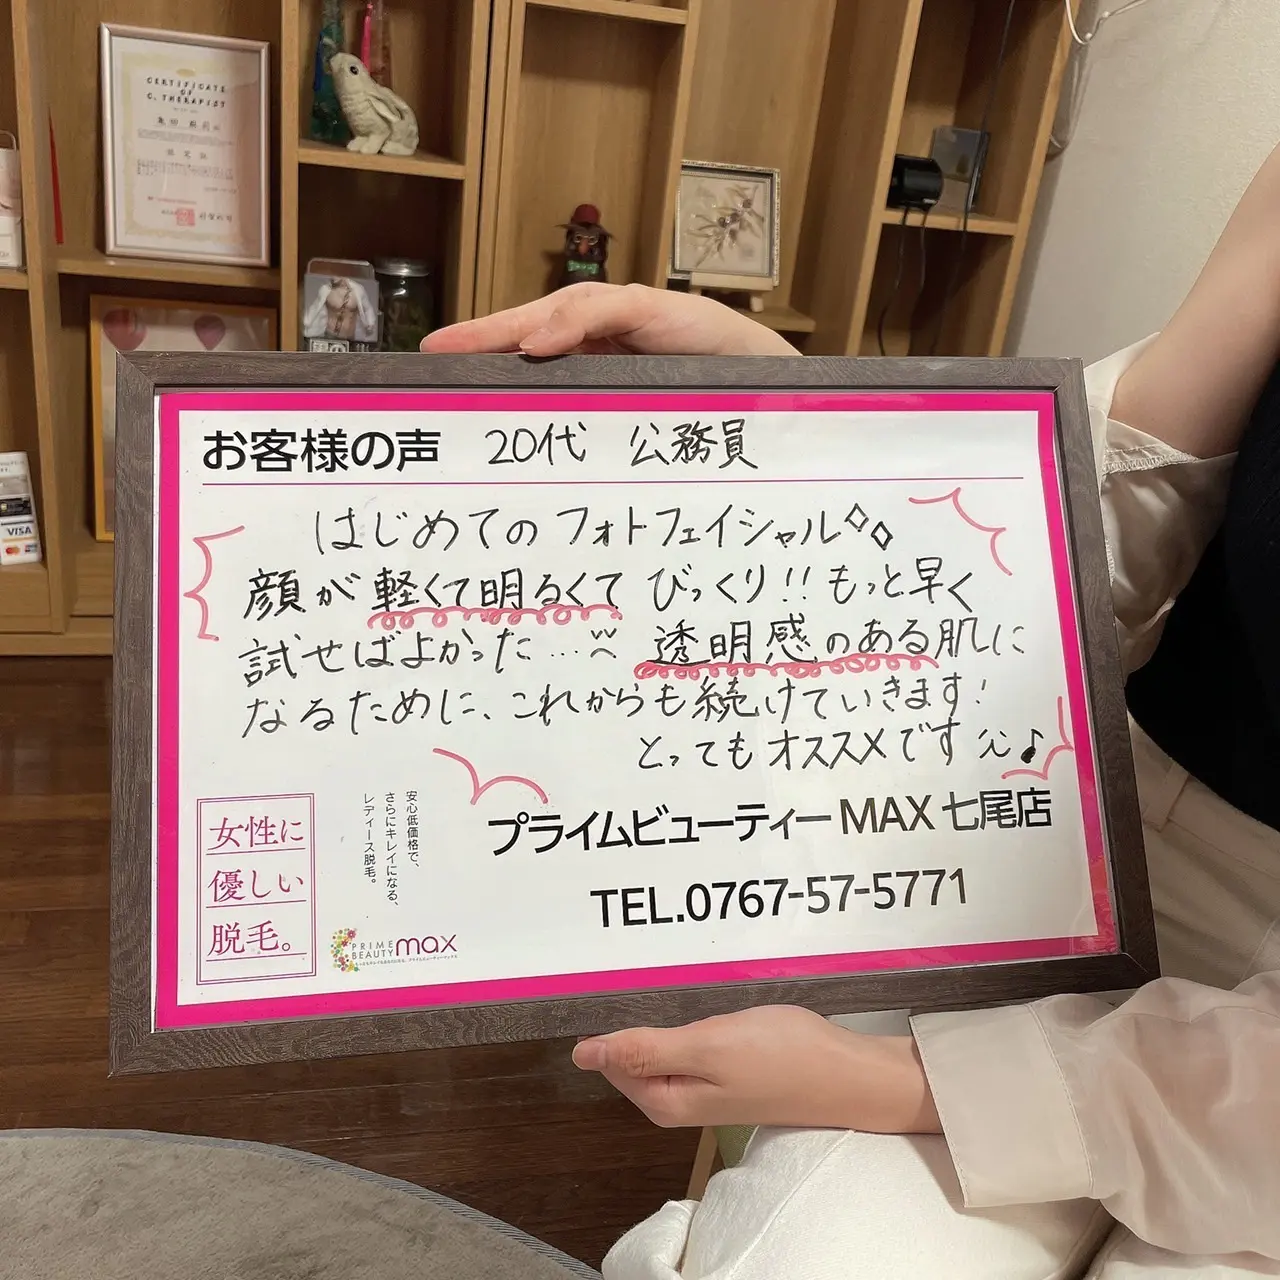 CERTIFICATE
OF
C. THERAPIST
認定証
VISA
お客様の声 20代 公務員
はじめてのフォトフェイシャル
顔が軽くて明るくてびっくり!!もっと早く
試せばよかった…
透明感のある肌に
なるために、これからも続けていきます!
とってもオススメです♪
プライムビューティーMAX 七尾店
TEL.0767-57-5771
女性に
優しい
脱毛。
安心低価格で、
さらにキレイになる、
レディース脱毛。
PRIME
BEAUTY max